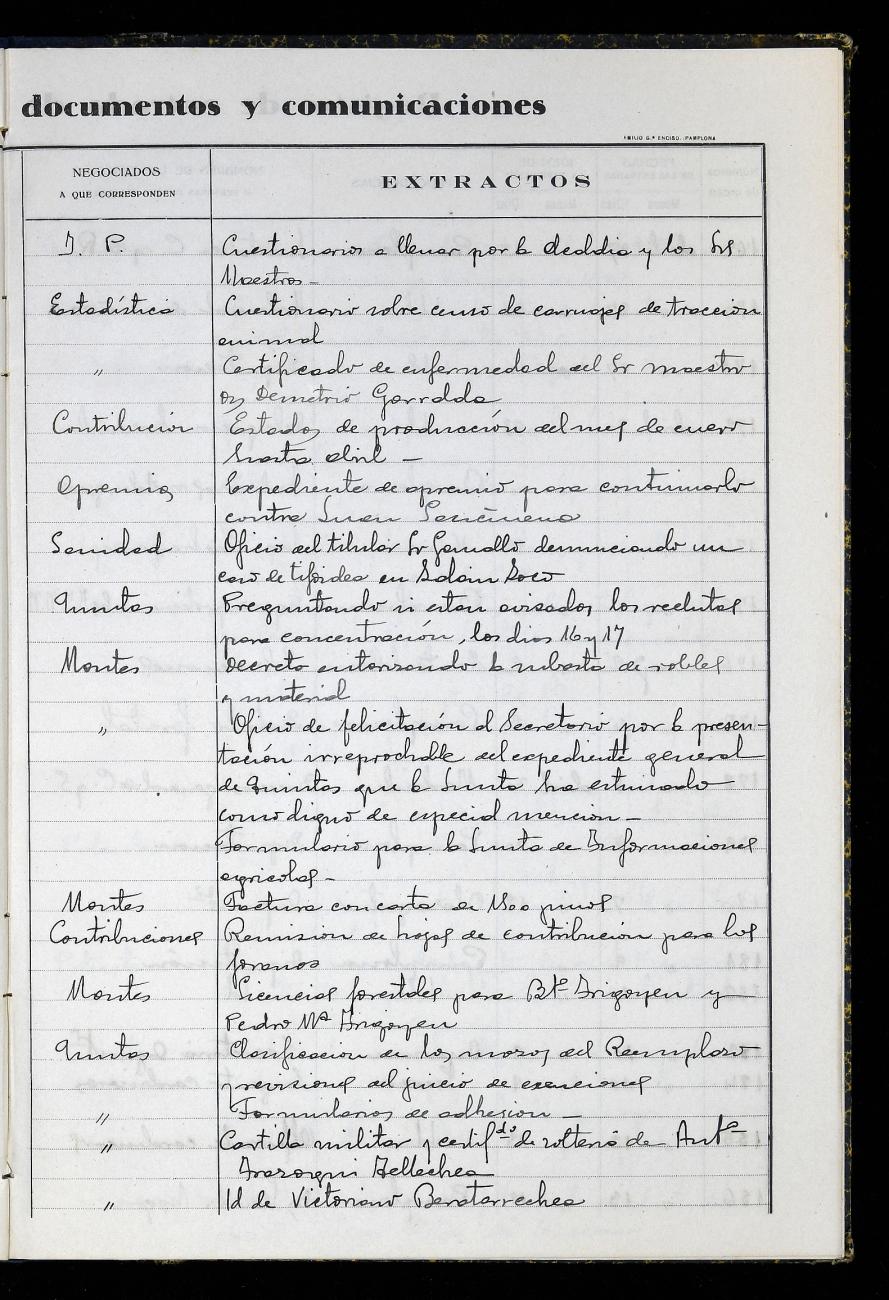 documentos y comunicaciones
EMILIO G.ª ENCISO.-PAMPLONA
NEGOCIADOS
A QUE CORRESPONDEN
EXTRACTOS
I. P.
Cuestionarios a llenar por la Alcaldia y los Srs
Maestros –
Estadística
Cuestionario sobre censo de carruajes de traccion
animal
"
Certificado de enfermedad del Sr maestro
Dn Demetrio Garralda
Contribución
Estados de producción del mes de enero
hasta abril –
Apremios
Expediente de apremio para continuarlo
contra Juan
Sanidad
Oficio del titular Sr Gamallo denunciando un
caso de tifoidea en
Quintas
Preguntando si estan avisados los reclutas
para concentración, los dias 16 y 17
Montes
Decreto autorizando la subasta de robles
y material
"
Oficio de felicitación al Secretario por la presen-
tación irreprochable del expediente general
de Quintas que la Junta ha estimado
como digno de especial mencion –
Formulario para la Junta de Informaciones
agricolas –
Montes
Factura con carta de 1500 pinos
Contribuciones
Remision de hojas de contribución para los
foranos
Montes
Licencias forestales para Bte Irigoyen y
Pedro Mª Irigoyen
Quintas
Clasificacion de los mozos del Reemplazo
y revisiones del juicio de exenciones
"
Formularios de adhesion –
"
Cartilla militar y certifdo de solteria de Antº
Irazoqui Tellechea
"
Id de Victoriano Beratarrechea